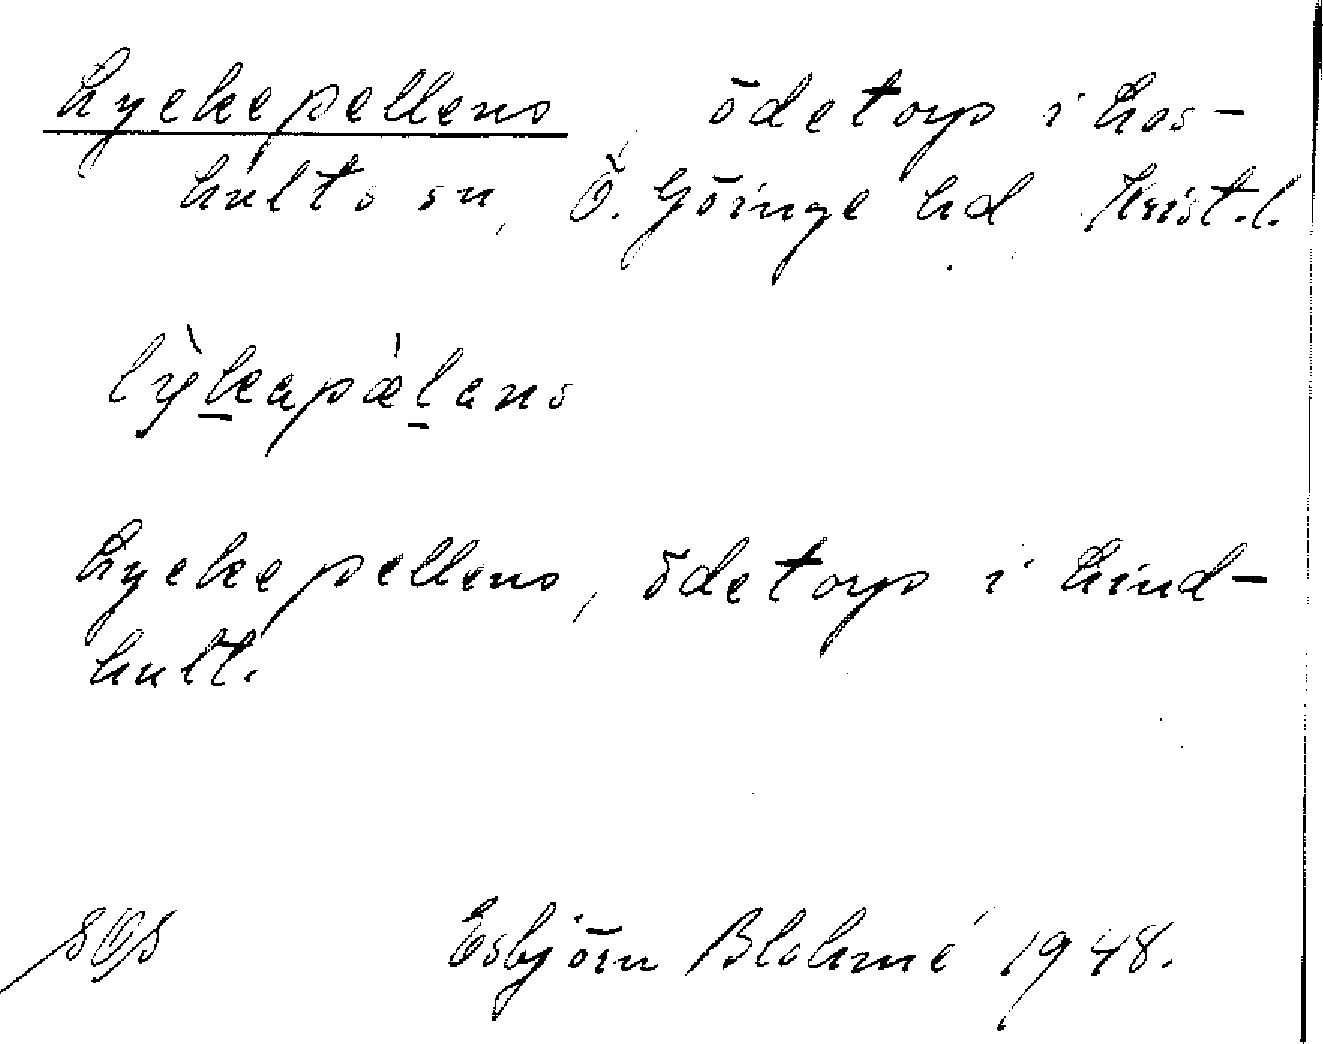 Lyckepellens, ödetorp i Los-
hults sn, Ö. Göinge hd Krist.l.
lỳkapæ̀lans
Lyckepellens, ödetorp i Lind-
hult.
Esbjörn Blohmé 1948.